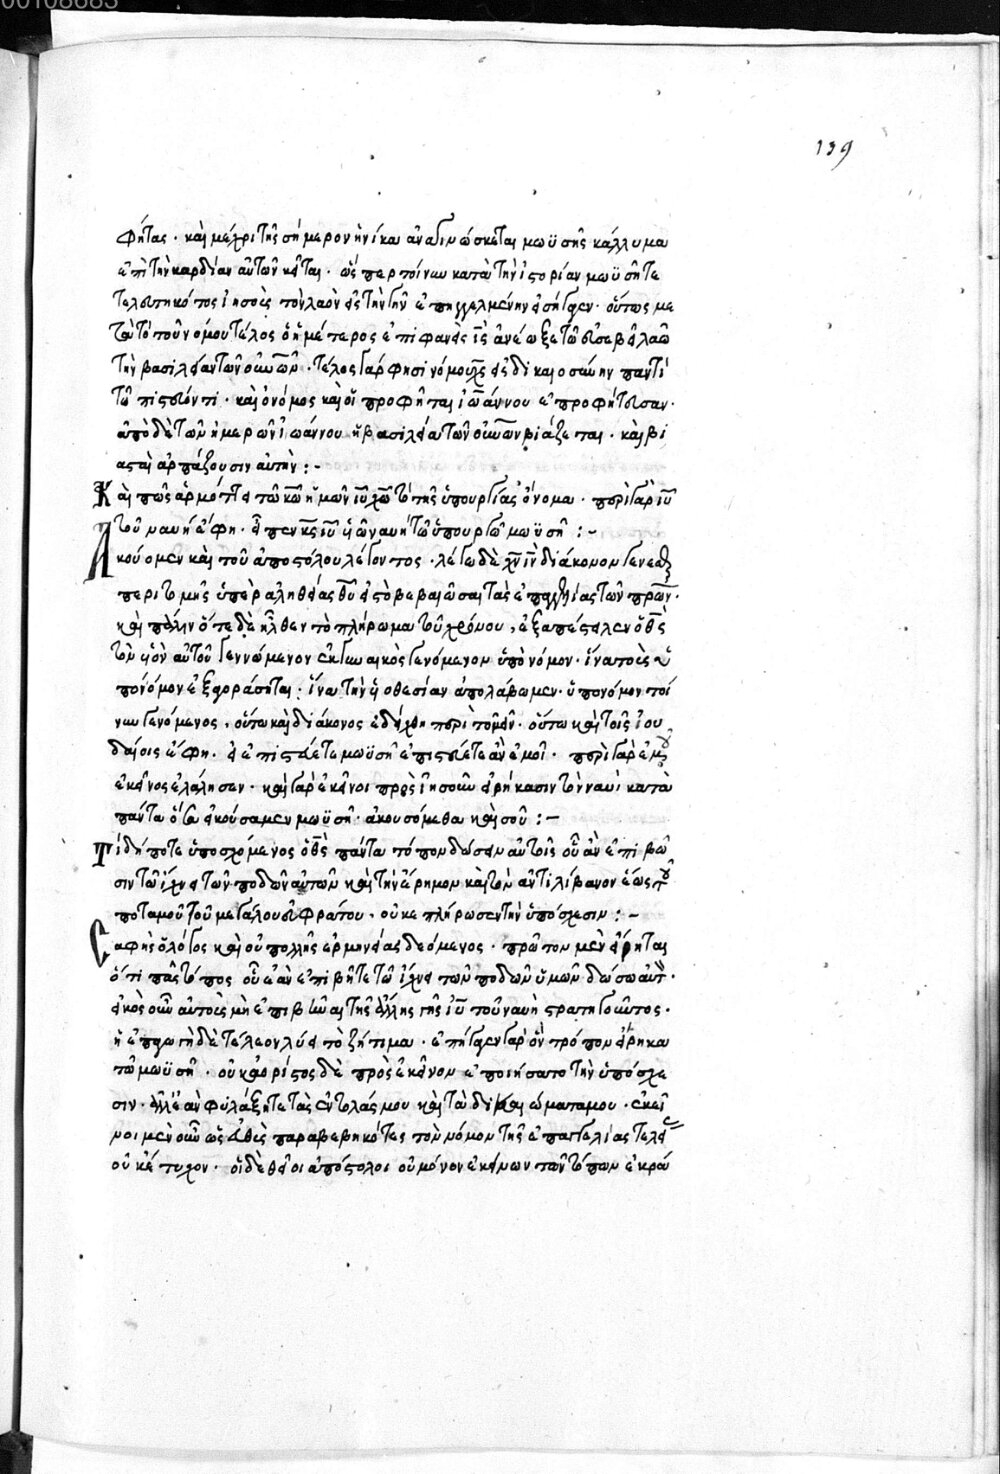 00108683
139
φήτας · καὶ μέχρι τῆς σήμερον ἡνίκα ἀναγινώσκεται μωϋσῆς κάλλυμα
ἐπὶ τὴν καρδίαν αὐτῶν κεῖται · ὥσπερ τοίνυν κατὰ τὴν ἱστορίαν μωϋσῆ τε
τελευτηκότος ἰησοῦς τὸν λαὸν εἰς τὴν γῆν ἐπηγγελμένην εἰσήγαγεν · οὕτως με
τὰ τὸ τοῦ νόμου τέλος ὁ ἡμέτερος ἐπιφανεὶς ι̅ς̅ ἀνέωξε τῶ εὐσεβεῖ λαῶ
τὴν βασιλείαν τῶν οὐνων · τέλος γάρ φησι νόμου χ̅ς̅ εἰς δικαιοσύνην παντὶ
τῶ πιστεύοντι · καὶ ὁ νόμος καὶ οἱ προφῆται ἰωάννου ἐπροφήτευσαν ·
ἀπὸ δὲ τῶν ἡμερῶν ἰωάννου ἡ βασιλεία τῶν οὐνων βιάζεται · καὶ βι
ασταὶ ἁρπάζουσιν αὐτήν : -
Καὶ πῶς ἁρμόττει τῶ κ̅ω̅ ἡμῶν ι̅υ̅ χ̅ω̅ τὸ τῆς ὑπουργίας ὄνομα · περὶ γὰρ ι̅υ̅
τοῦ ναυή ἔφη · εἶπεν κ̅ς̅ ι̅υ̅ υἱῶ ναυῆ τῶ ὑπουργῶ μωϋσῆ : -
Ακούομεν καὶ τοῦ ἀποστόλου λέγοντος · λέγω δὲ χ̅ν̅ ι̅ν̅ διάκονον γενε
περιτομῆς ὑπὲρ ἀληθείας θ̅υ̅ εἰς τὸ βεβαιῶσαι τὰς ἐπαγγελίας τῶν πρων ·
καὶ πάλιν ὅτε δὲ ἦλθεν τὸ πλήρωμα τοῦ χρόνου, ἐξαπέστειλεν ὁ θ̅ς̅
τὸν υἱὸν αὐτοῦ γεννώμενον ἐκ γυναικὸς γενόμενον ὑπὸ νόμον · ἵνα τοὺς ὑ
πὸ νόμον ἐξαγοράσηται · ἵνα τὴν υἱοθεσίαν ἀπολάβωμεν · ὑπὸ νόμον τοί
νυν γενόμενος, οὕτω καὶ διάκονος ἐδείχθη περιτομῆς · οὕτω καὶ τοῖς ἰου
δαίοις ἔφη · εἰ ἐπιστεύετε μωϋσῆ ἐπιστεύετε ἂν ἐμοί · περὶ γὰρ ἐμοῦ
ἐκεῖνος ἐλάλησεν · καὶ γὰρ ἐκεῖνοι πρὸς ἰησοῦν εἰρήκασιν τὸν ναυὶ κατὰ
πάντα ὅσα ἀκούσαμεν μωϋσῆ · ἀκουσόμεθα καὶ σοῦ : -
Τί δήποτε ὑποσχόμενος ὁ θ̅ς̅ πάντα τόπον δώσειν αὐτοῖς οὗ ἂν ἐπιβῶ
σιν τῶ ἴχνει τῶν ποδῶν αὐτῶν καὶ τὴν ἔρημον καὶ τὸν ἀντιλίβανον ἕως τοῦ
ποταμοῦ τοῦ μεγάλου εὐφράτου · οὐκ ἐπλήρωσεν τὴν ὑπόσχεσιν : -
Σαφὴς ὁ λόγος καὶ οὐ πολλῆς ἑρμηνείας δεόμενος · πρῶτον μὲν εἴρηται
ὅτι πᾶς τόπος οὗ ἐὰν ἐπιβῆτε τῶ ἴχνει τῶν ποδῶν ὑμῶν δώσω αὐτ ·
εἰκὸς οὖν αὐτοὺς μὴ ἐπιβῆναι τῆς ἄλλης γῆς ι̅υ̅ τοῦ ναυὴ στρατηγοῦντος ·
ἡ ἐπαγωγὴ δὲ τέλεον λύει τὸ ζήτημα · ἐπήγαγεν γὰρ ὃν τρόπον εἴρηκα
τῶ μωϋσῆ · οὐκ ἀορίστως δὲ πρὸς ἐκεῖνον ἐποιήσατο τὴν ὑπόσχε
σιν · ἀλλ' ἐὰν φυλάξητε τὰς ἐντολάς μου καὶ τὰ δικαιώματά μου · ἐκεῖ
νοι μὲν οὖν ὡς εὐθὺς παραβεβηκότες τὸν νόμον τῆς ἐπαγγελίας τελεί
οὐκ ἔτυχον · οἱ δὲ θεῖοι ἀπόστολοι οὐ μόνον ἐκείνων τῶν τόπων ἐκρά